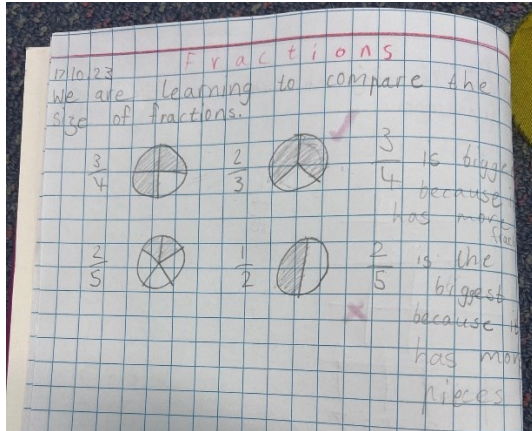 Fractions
17.10.23
We are learning to compare the
size of fractions.
3/4 2/3 3/4 is
because
has more
2/5 1/2 2/5 is the
biggest
because
has
pieces